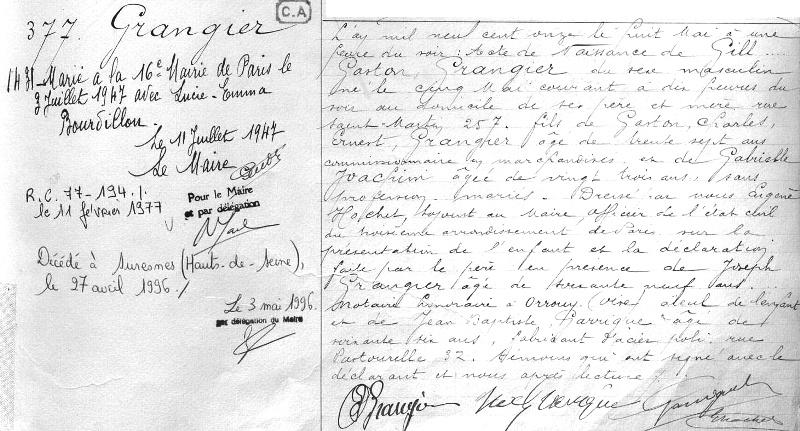 C.A
377. Grangier
1431 - Marié à la 16e Mairie de Paris le
3 Juillet 1947 avec Lucie-Emma
Bourdillon.
Le 11 Juillet 1947
Le Maire
R.C. 77-194.1.
le 11 février 1977
Pour le Maire
et par délégation
Décédé à Suresnes (Hauts-de-Seine),
le 27 avril 1996.
Le 3 mai 1996.
par délégation du Maire
L'an mil neuf cent onze le huit Mai à une
heure du soir : Acte de Naissance de Gill
Gaston, Grangier du sexe masculin
né le cinq Mai courant à des heures du
soir au domicile de ses père et mère rue
Saint Martin 257. fils de Gaston, Charles,
Ernest, Grangier âgé de trente sept ans
commissionnaire en marchandises, et de Gabrielle
Joachim âgée de vingt trois ans, sans
profession. mariés. Dressé par nous Eugène
Hochet, adjoint au Maire, officier de l'état civil
du troisième arrondissement de Paris sur la
présentation de l'enfant et la déclaration
faite par le père en présence de Joseph
Grangier âgé de soixante neuf ans
notaire honoraire à Orrouy (Oise) aïeul de l'enfant
et de Jean Baptiste, Garrigue âgé de
soixante six ans, fabricant d'acier poli rue
Pastourelle 32. témoins qui ont signé avec le
déclarant et nous après lecture.
Grangier